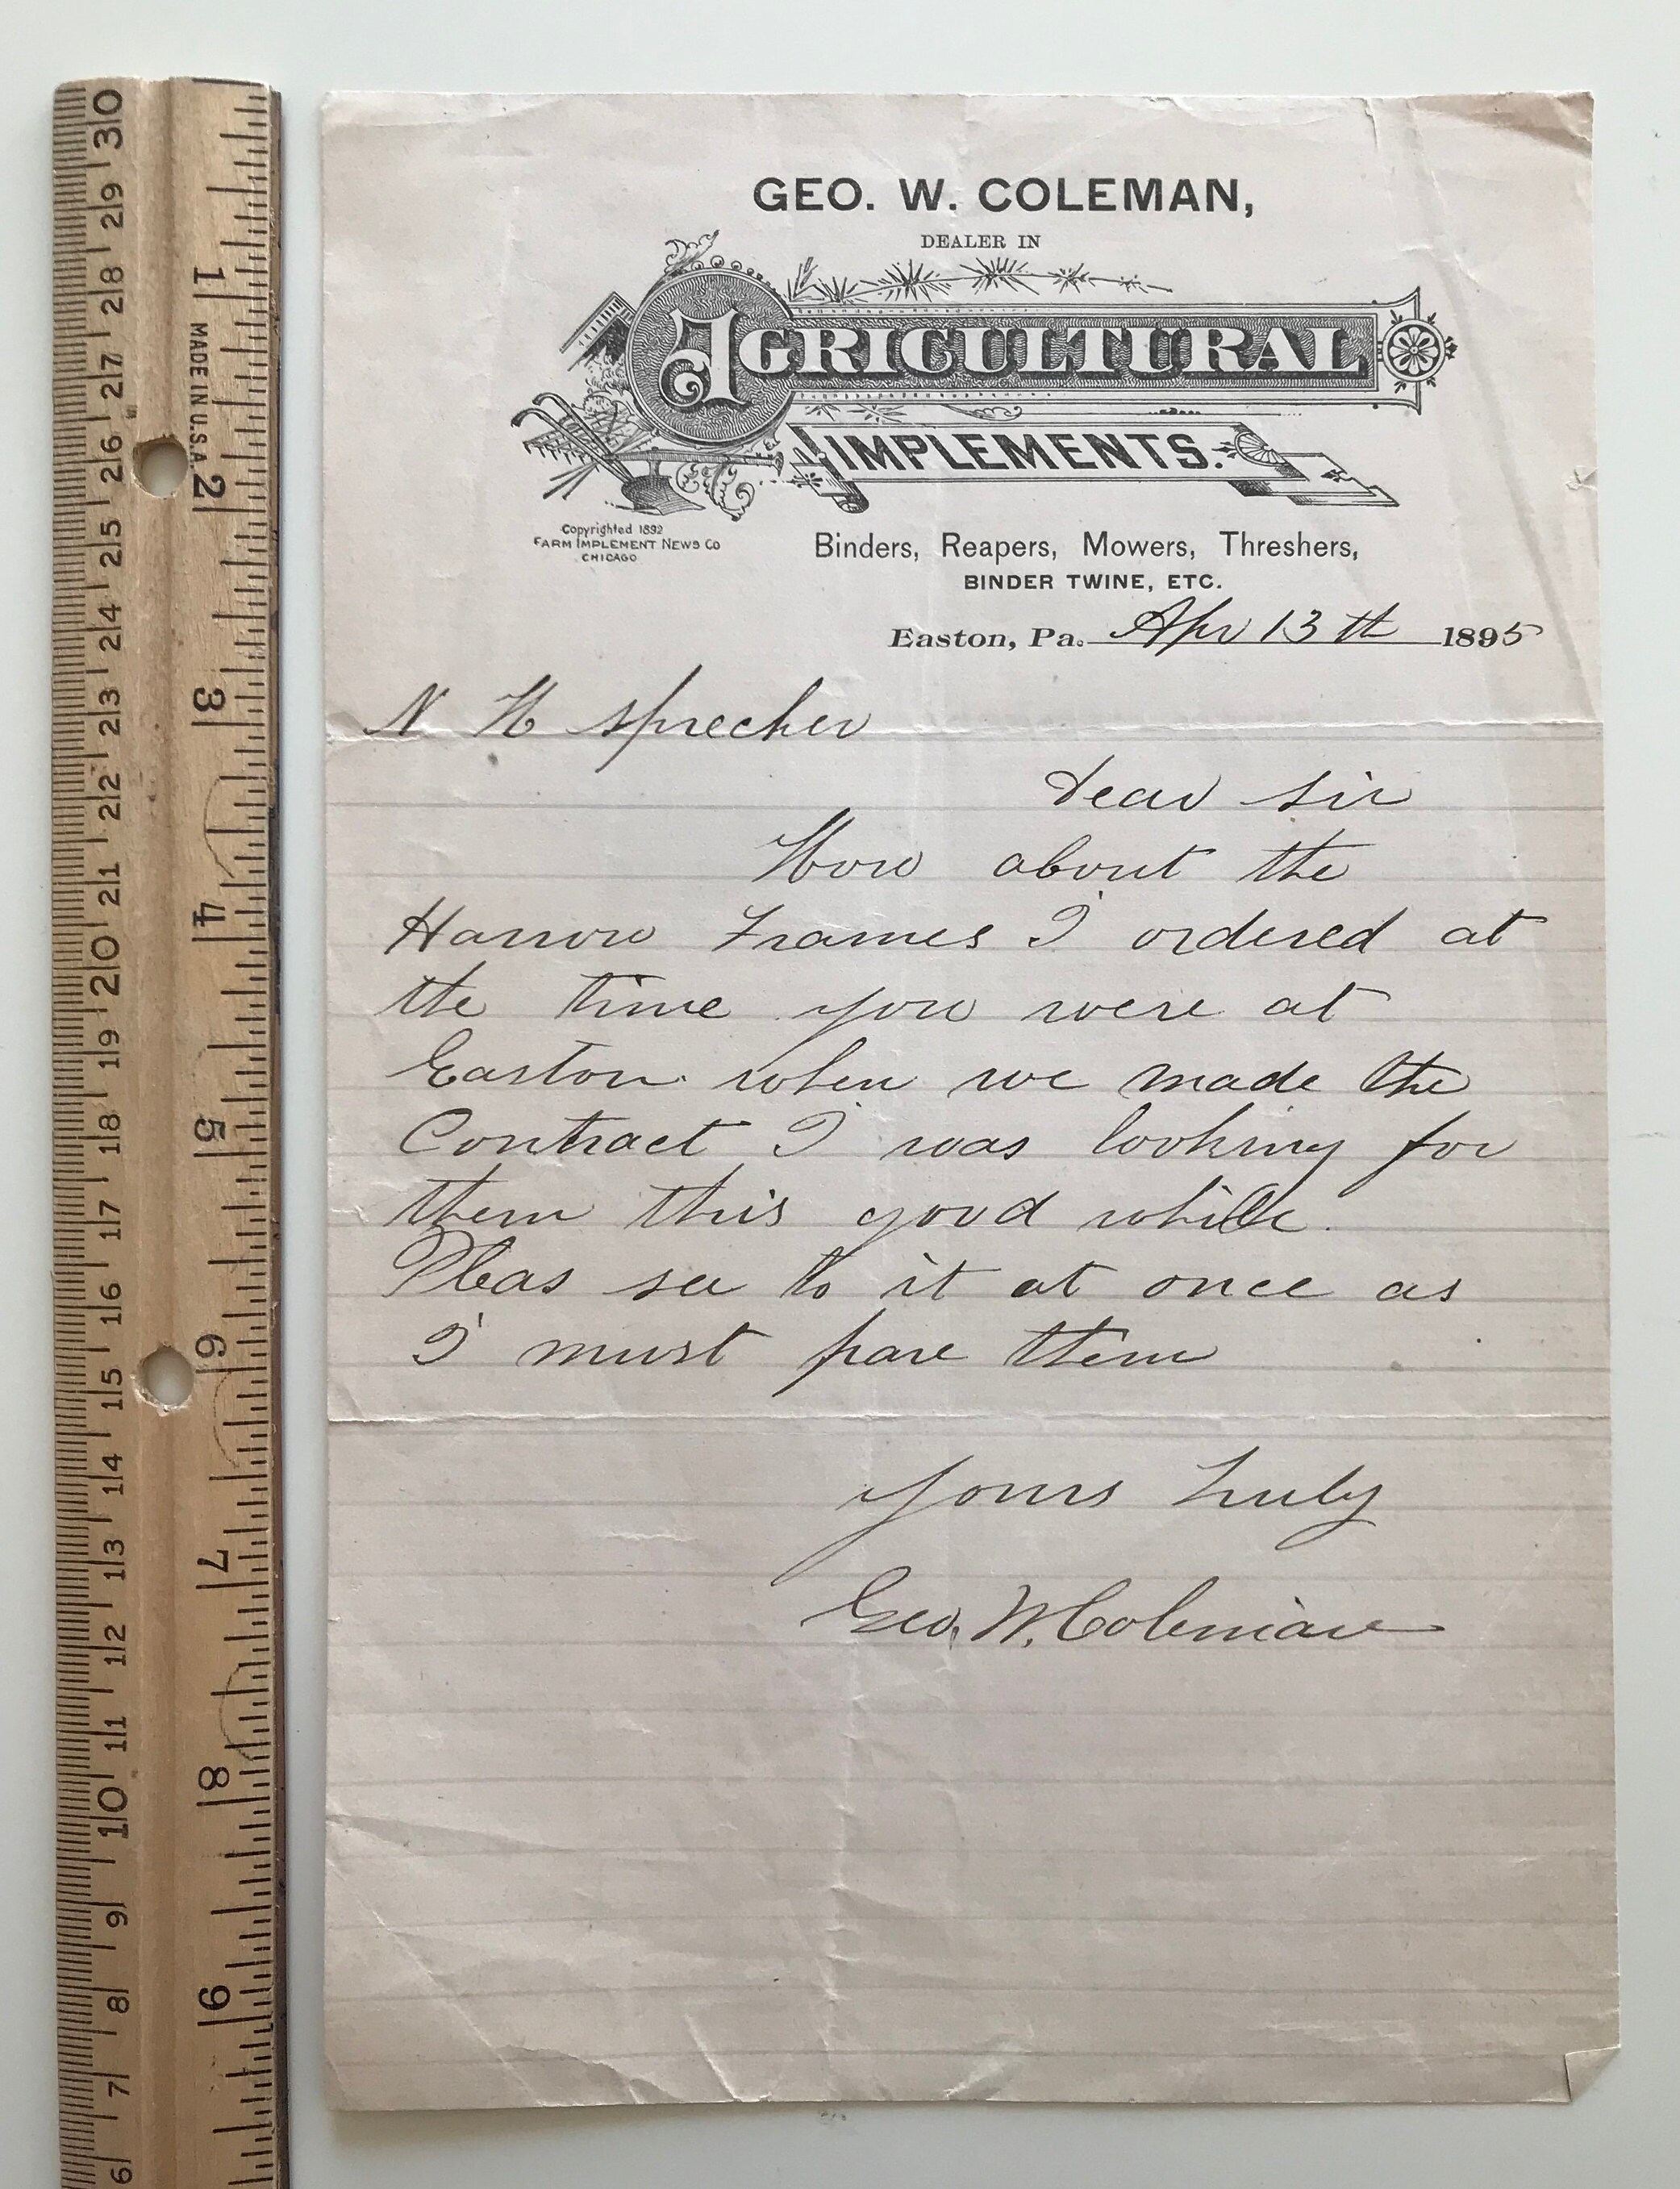 GEO. W. COLEMAN,
DEALER IN
AGRICULTURAL
IMPLEMENTS.
Copyrighted 1892
FARM IMPLEMENT NEWS Co
CHICAGO
Binders, Reapers, Mowers, Threshers,
BINDER TWINE, ETC.
Easton, Pa. Apr 13th 1895
N H Sprecher
Dear Sir
How about the
Harrow Frames I ordered at
the time you were at
Easton when we made the
Contract I was looking for
them this good while.
Pleas see to it at once as
I must have them
Yours Truly
Geo. W. Coleman
30 29 28 27 26 25 24 23 22 21 20 19 18 17 16 15 14 13 12 11 10 9 8 7 6
1 2 3 4 5 6 7 8 9
MADE IN U.S.A.